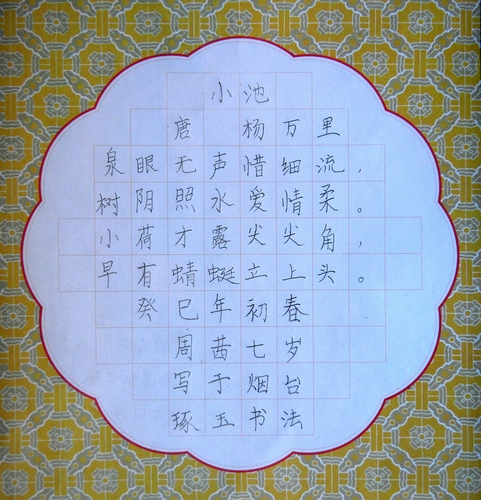 小池
唐 杨万里
泉眼无声惜细流，
树阴照水爱情柔。
小荷才露尖尖角，
早有蜻蜓立上头。
癸巳年初春
周茜七岁
写于烟台
琢玉书法